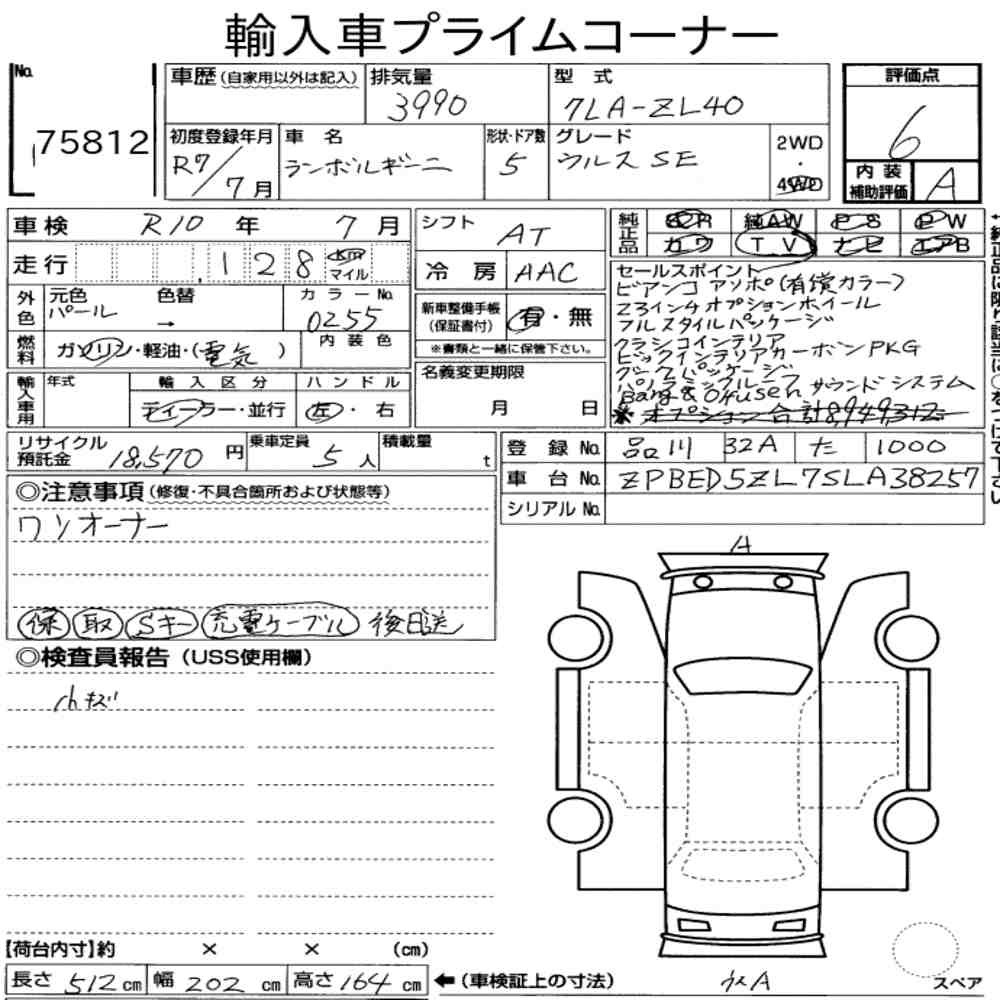 輸入車プライムコーナー
No. 75812
車歴 (自家用以外は記入)
排気量 3990
型式 7LA-ZL40
評価点 6
初度登録年月 R7/7月
車名 ランボルギーニ
形状・ドア数 5
グレード ウルス SE
2WD・4WD
内装補助評価 A
車検 R10年 7月
走行 128 km マイル
シフト AT
冷房 AAC
純正品 SR 純AW PS PW
カワ TV ナビ エアB
外色 元色 パール 色替 → カラーNo. 0255
内装色
燃料 ガソリン・軽油・(電気)
新車整備手帳(保証書付) 有・無
※書類と一緒に保管下さい。
セールスポイント
ビアンコ アソポ(有償カラー)
23インチオプションホイール
フルスタイルパッケージ
クラシコインテリア
ビックインテリアカーボンPKG
パノラミックルーフ
Bang & Olfusen サウンドシステム
※オプション合計8949312
輸入車用 年式 輸入区分 ハンドル
ディーラー・並行 左・右
名義変更期限
月 日
リサイクル預託金 18,570円
乗車定員 5人
積載量 t
登録No. 品川 32A た 1000
車台No. ZPBED5ZL7SLA38257
シリアルNo.
◎注意事項(修復・不具合箇所および状態等)
ワンオーナー
保 取 Sキー 充電ケーブル 後日送
◎検査員報告(USS使用欄)
小キズ
A
【荷台内寸】約 × × (cm)
長さ 512 cm 幅 202 cm 高さ 164 cm ←(車検証上の寸法)
スペア